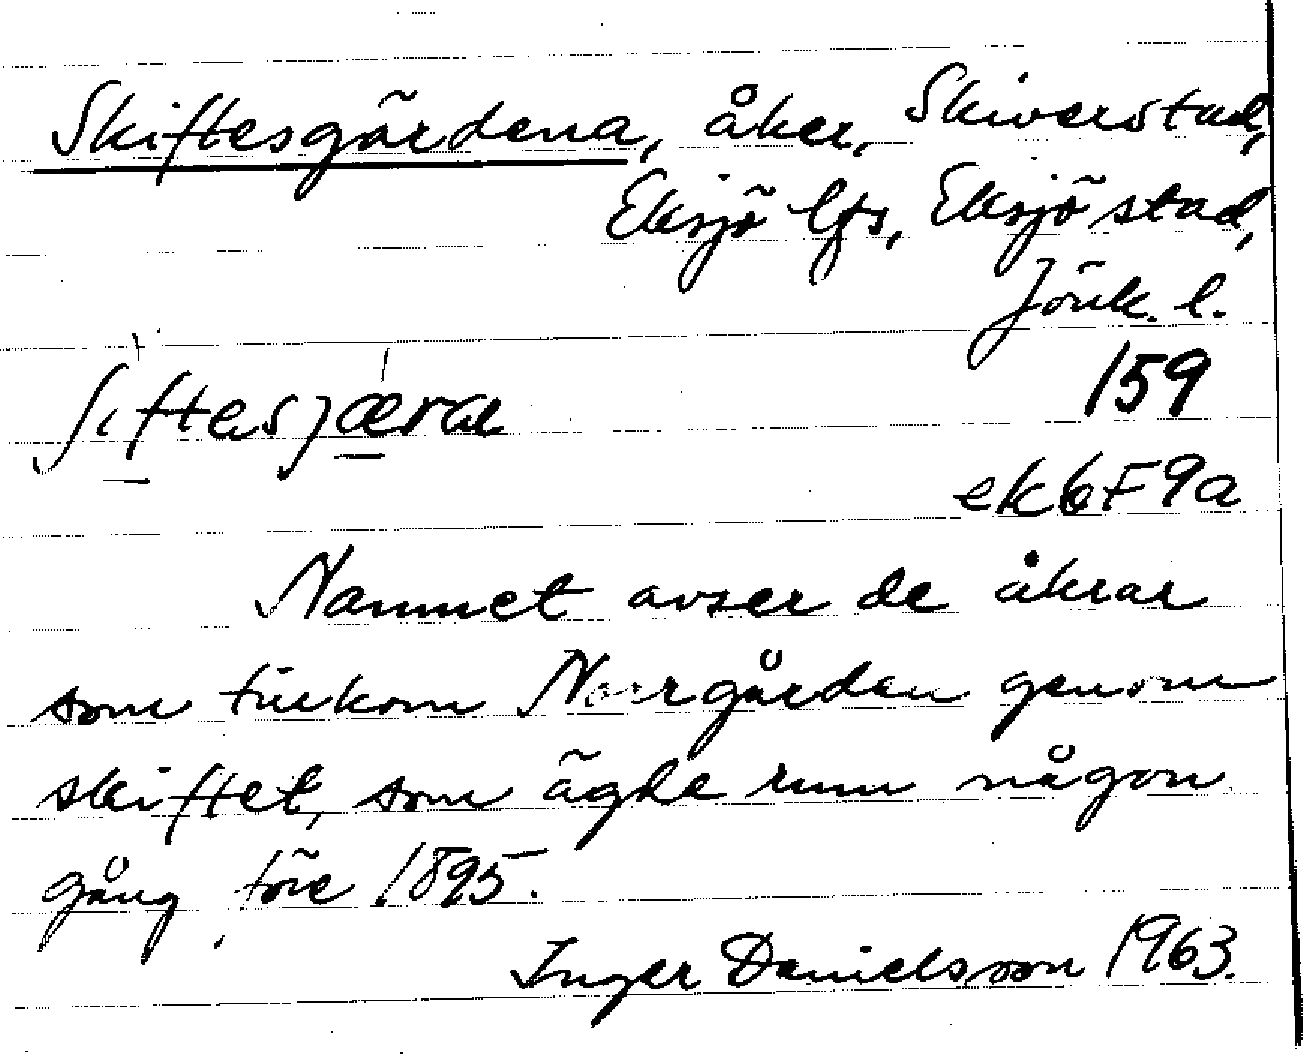 Skiftesgärdena, åker, Skiverstad,
Eksjö lfs, Eksjö stad,
Jönk. l.
159
ek 6F9a
Namnet avser de åkrar
som tillkom Norrgården genom
skiftet, som ägde rum någon
gång före 1895.
Inger Danielsson 1963.